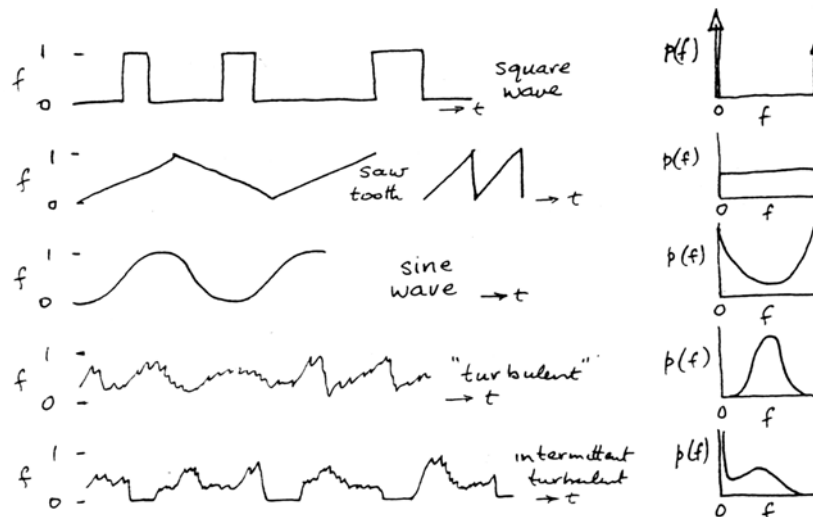 1
f
0
square
wave
→ t
p(f)
0
f
1
f
0
saw
tooth
→ t
p(f)
0
f
1
f
0
sine
wave
→ t
p(f)
0
f
1
f
0
"turbulent"
→ t
p(f)
0
f
1
f
0
intermittant
turbulent
→ t
p(f)
0
f